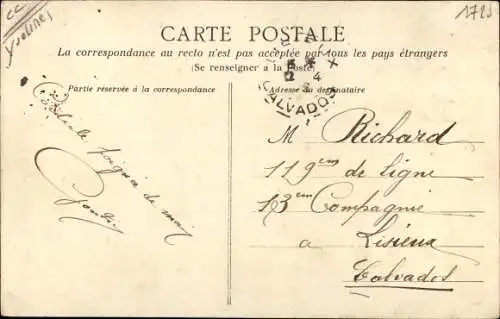 CC
Yvelines
1725
CARTE POSTALE
La correspondance au recto n'est pas acceptée par tous les pays étrangers
(Se renseigner a la Poste)
Partie réservée à la correspondance
Adresse du destinataire
CALVADOS
M Richard
119em de ligne
13em Compagnie
a Lisieux
Calvados
poignée de main